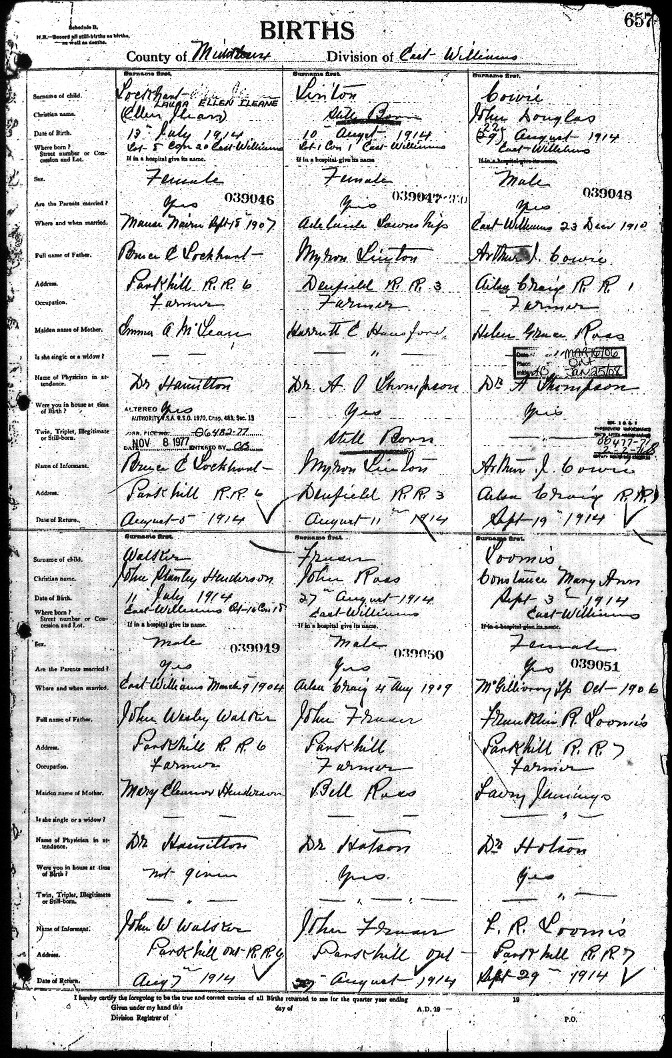 657
Schedule B.
N.B.—Record all still-births as births, as well as deaths.
BIRTHS
County of Middlesex Division of East Williams
Surname first. Surname first. Surname first.
Surname of child. Lockhart Linton Cowie
LAURA ELLEN ILEANE
Christian name. (Ellen Ileane) Still Born John Douglas
Date of Birth. 13th July 1914 10th August 1914 (22) August 1914
Where born? Street number or Concession and Lot. Lot 5 Con 20 East Williams Lot 1 Con 1 East Williams East Williams
If in a hospital give its name. If in a hospital give its name. If in a hospital give its name.
Sex. Female Female Male
039046 039047 039048
Are the Parents married? Yes Yes Yes
Where and when married. Manse Nairn Sept 18th 1907 Adelaide Township East Williams 23 Decr 1910
Full name of Father. Bruce C Lockhart Myron Linton Arthur J. Cowie
Address. Parkhill R.R. 6 Denfield R R 3 Ailsa Craig R R 1
Occupation. Farmer Farmer Farmer
Maiden name of Mother. Emma A McLean Harrett C Hansford Helen Grace Ross
Is she single or a widow? — — — " — —
MAR 6/06
ONT
JAN 25/08
Name of Physician in attendance. Dr Hamilton Dr. A Thompson Dr A Thompson
Were you in house at time of Birth? Yes Yes Yes
ALTERED
AUTHORITY V.S.A. R.S.O. 1970, Chap. 483, Sec. 13
Twin, Triplet, Illegitimate or Still-born. Still Born
COR. FILE NO. 06482-77
DATE NOV 8 1977 ENTERED BY
Name of Informant. Bruce C Lockhart Myron Linton Arthur J. Cowie
Address. Parkhill R.R. 6 Denfield R R 3 Ailsa Craig R.R. 1
Date of Return. August 5th 1914 August 11th 1914 Sept 19th 1914
Surname first. Surname first. Surname first.
Surname of child. Walker Fraser Loomis
Christian name. John Stanley Henderson John Ross Constance Mary Ann
Date of Birth. 11th July 1914 27th August 1914 Sept 3rd 1914
Where born? Street number or Concession and Lot. East Williams Lot 16 Con 18 East Williams East Williams
If in a hospital give its name. If in a hospital give its name. If in a hospital give its name.
Sex. Male Male Female
039049 039050 039051
Are the Parents married? Yes Yes Yes
Where and when married. East Williams March 9 1904 Ailsa Craig 4 Aug 1909 McGillivray Tp Oct 1906
Full name of Father. John Wesley Walker John Fraser Franklin R. Loomis
Address. Parkhill R R 6 Parkhill Parkhill R.R. 7
Occupation. Farmer Farmer Farmer
Maiden name of Mother. Mary Eleanor Henderson Bell Ross Jennings
Is she single or a widow? — — — — — " —
Name of Physician in attendance. Dr Hamilton Dr Hotson Dr Hotson
Were you in house at time of Birth? not given Yes. Yes
Twin, Triplet, Illegitimate or Still-born. — " — — " — — " —
Name of Informant. John W Walker John Fraser F. R. Loomis
Address. Parkhill Ont R.R. 6 Parkhill Ont Parkhill R.R. 7
Date of Return. Aug 7th 1914 August 1914 Sept 29th 1914
I hereby certify the foregoing to be the true and correct entries of all Births returned to me for the quarter year ending 19
Given under my hand this day of A.D. 19
Division Registrar of P.O.